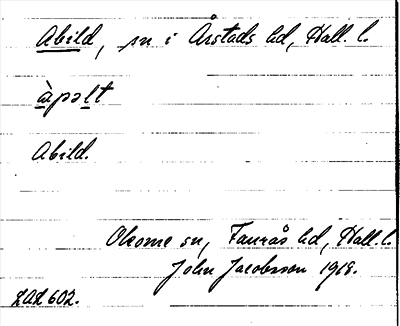 Abild, sn i Årstads hd, Hall. l.
àpəlt
Abild.
Okome sn, Faurås hd, Hall. l.
John Jacobsson 1918.
LAL 602.